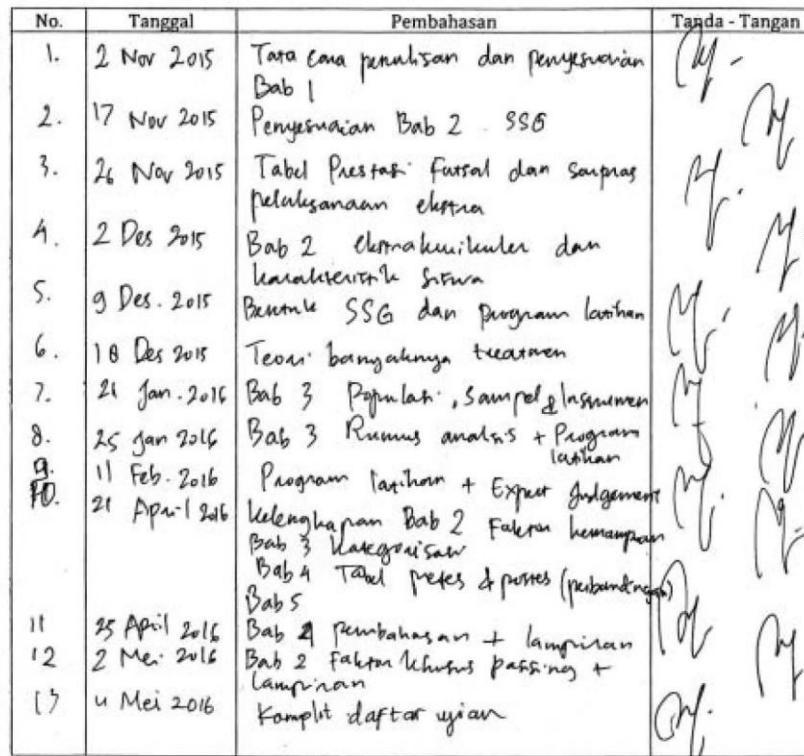 No. Tanggal Pembahasan Tanda - Tangan
1. 2 Nov 2015 Tata cara penulisan dan penyesuaian
Bab 1
2. 17 Nov 2015 Penyesuaian Bab 2 SSG
3. 26 Nov 2015 Tabel Prestasi Futsal dan sarpras
pelaksanaan ekstra
4. 2 Des 2015 Bab 2 ekstrakurikuler dan
karakteristik siswa
5. 9 Des. 2015 Bentuk SSG dan program latihan
6. 18 Des 2015 Teori banyaknya treatmen
7. 21 Jan. 2016 Bab 3 Populasi, Sampel & Instrumen
8. 25 Jan 2016 Bab 3 Rumus analisis + Program
latihan
9. 11 Feb. 2016 Program latihan + Expert Judgement
10. 21 April 2016 Kelengkapan Bab 2 Faktor kemampuan
Bab 3 Kategorisasi
Bab 4 Tabel pretes & postes (perbandingan)
Bab 5
11 25 April 2016 Bab 4 pembahasan + lampiran
12 2 Mei 2016 Bab 2 Faktor khusus passing +
lampiran
13 4 Mei 2016 Komplit daftar ujian